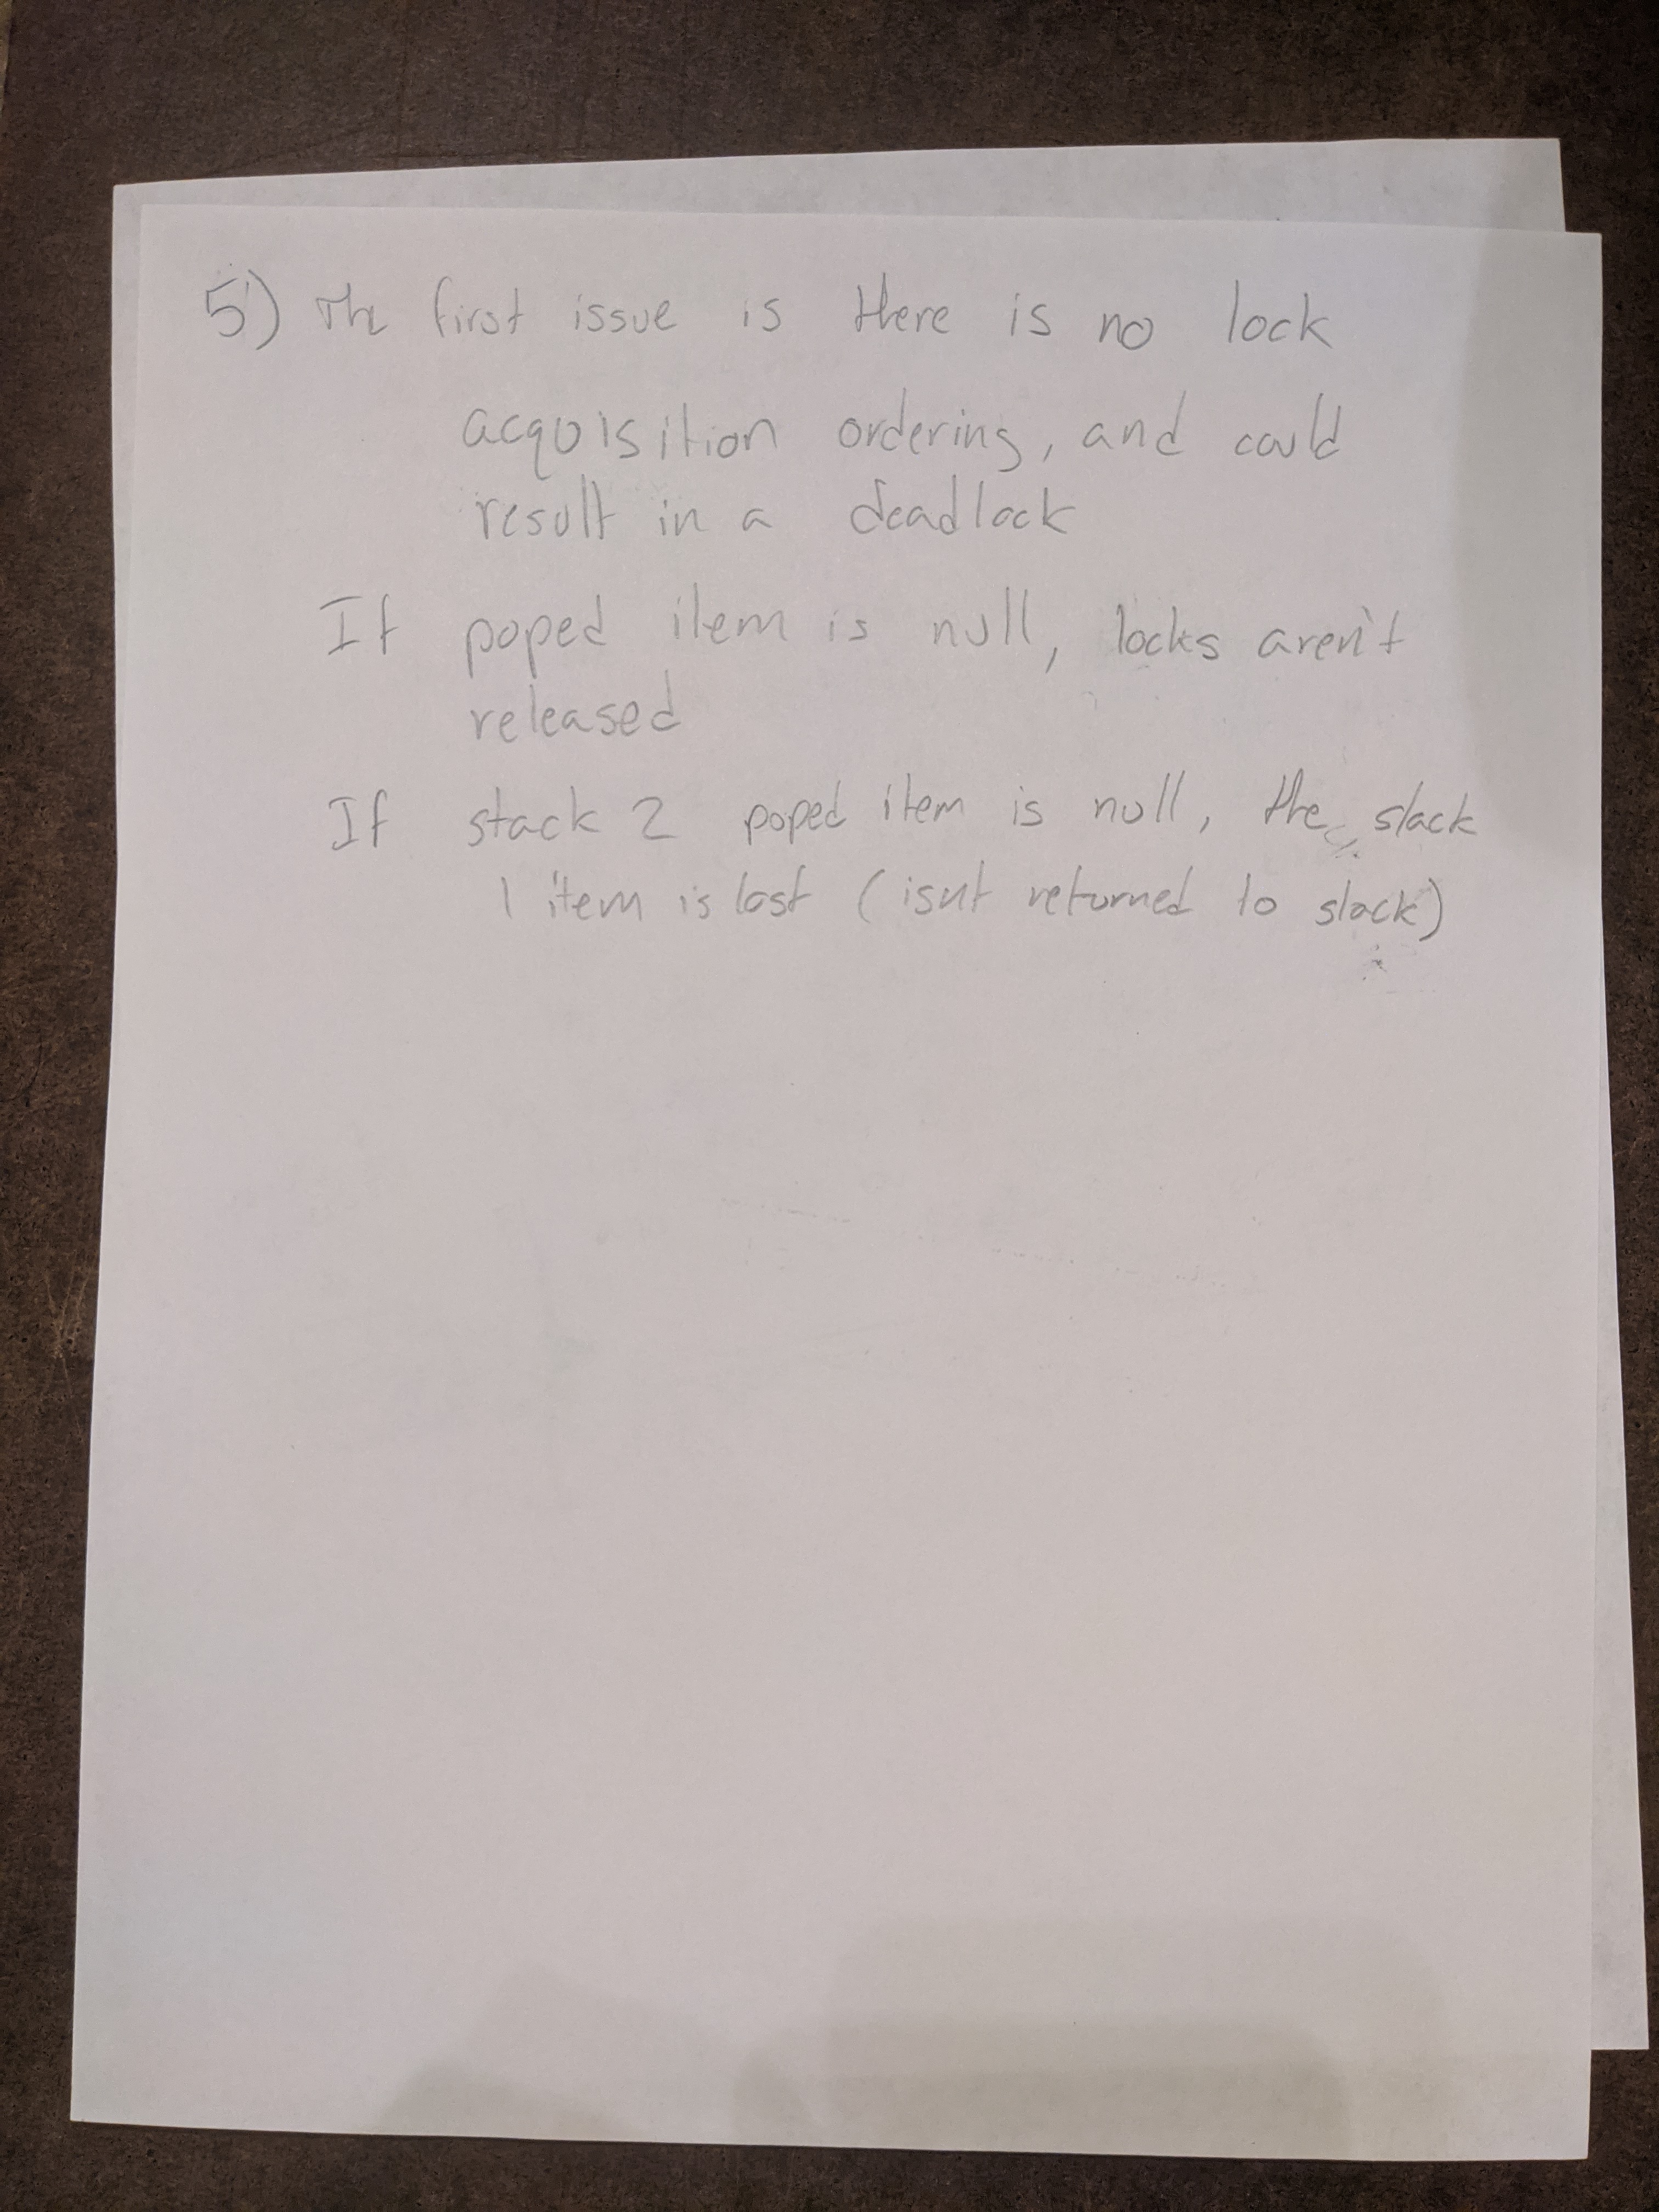 5) The first issue is there is no lock
acquisition ordering, and could
result in a deadlock
If poped item is null, locks aren't
released
If stack 2 poped item is null, the stack
1 item is lost (isnt returned to stack)